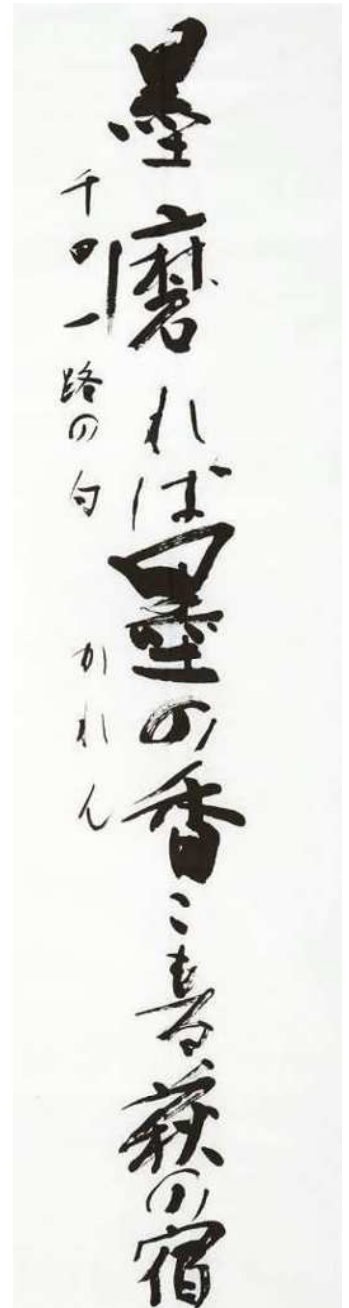 墨磨れば墨の香こもる萩の宿
千田一路の句　かれん